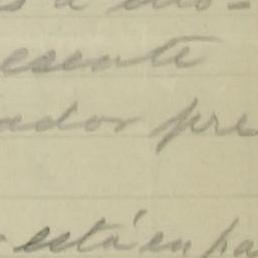 esente
ador pre
está en pa